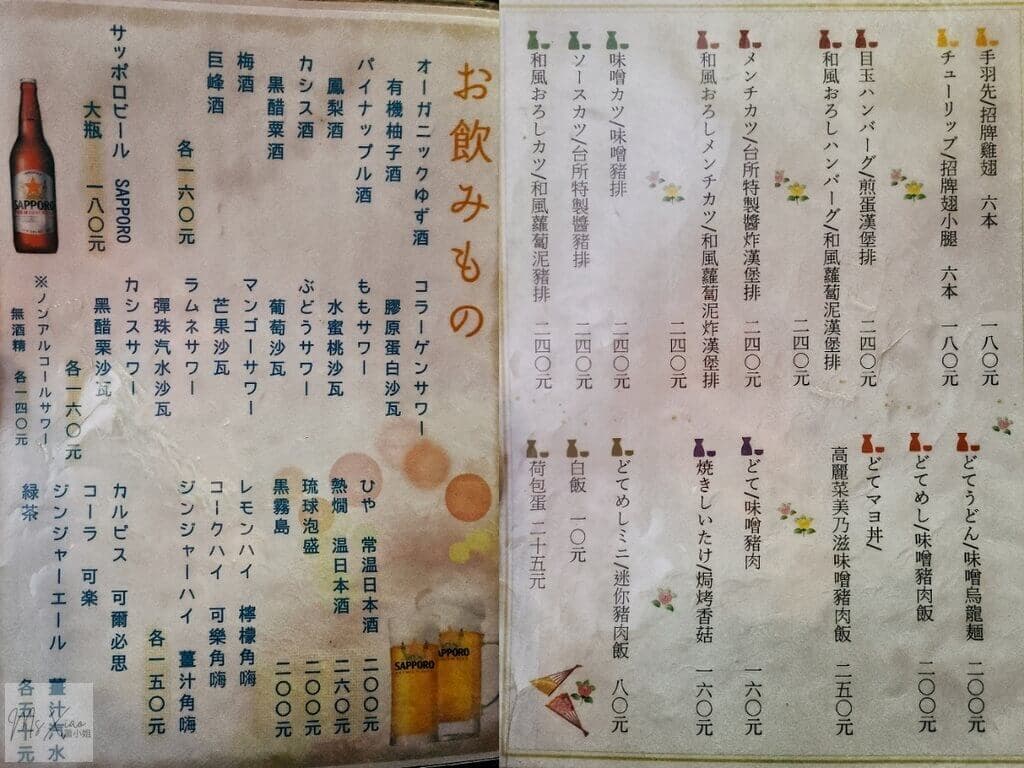 お飲みもの
オーガニックゆず酒
有機柚子酒
パイナップル酒
鳳梨酒
カシス酒
黒醋粟酒
梅酒
巨峰酒
各一六〇元
サッポロビール SAPPORO
大瓶 一八〇元
コラーゲンサワー
膠原蛋白沙瓦
ももサワー
水蜜桃沙瓦
ぶどうサワー
葡萄沙瓦
マンゴーサワー
芒果沙瓦
ラムネサワー
彈珠汽水沙瓦
カシスサワー
黑醋栗沙瓦
各一六〇元
※ノンアルコールサワー
無酒精 各一四〇元
ひや 常温日本酒 二〇〇元
熱燗 温日本酒 二六〇元
琉球泡盛 二〇〇元
黒霧島 二〇〇元
レモンハイ 檸檬角嗨
コークハイ 可樂角嗨
ジンジャーハイ 薑汁角嗨
各一五〇元
カルピス 可爾必思
コーラ 可楽
ジンジャーエール 薑汁汽水
緑茶
各五十元
SAPPORO
SAPPORO
SAPPORO
手羽先/招牌雞翅 六本 一八〇元
チューリップ/招牌翅小腿 六本 一八〇元
目玉ハンバーグ/煎蛋漢堡排 二四〇元
和風おろしハンバーグ/和風蘿蔔泥漢堡排 二四〇元
メンチカツ/台所特製醬炸漢堡排 二四〇元
和風おろしメンチカツ/和風蘿蔔泥炸漢堡排 二四〇元
味噌カツ/味噌豬排 二四〇元
ソースカツ/台所特製醬豬排 二四〇元
和風おろしカツ/和風蘿蔔泥豬排 二四〇元
どてうどん/味噌烏龍麺 二〇〇元
どてめし/味噌豬肉飯 二〇〇元
どてマヨ丼/
高麗菜美乃滋味噌豬肉飯 二五〇元
どて/味噌豬肉 一六〇元
焼きしいたけ/焗烤香菇 一六〇元
どてめしミニ/迷你豬肉飯 八〇元
白飯 一〇元
荷包蛋 二十五元
Ms. Xiao
蕭小姐